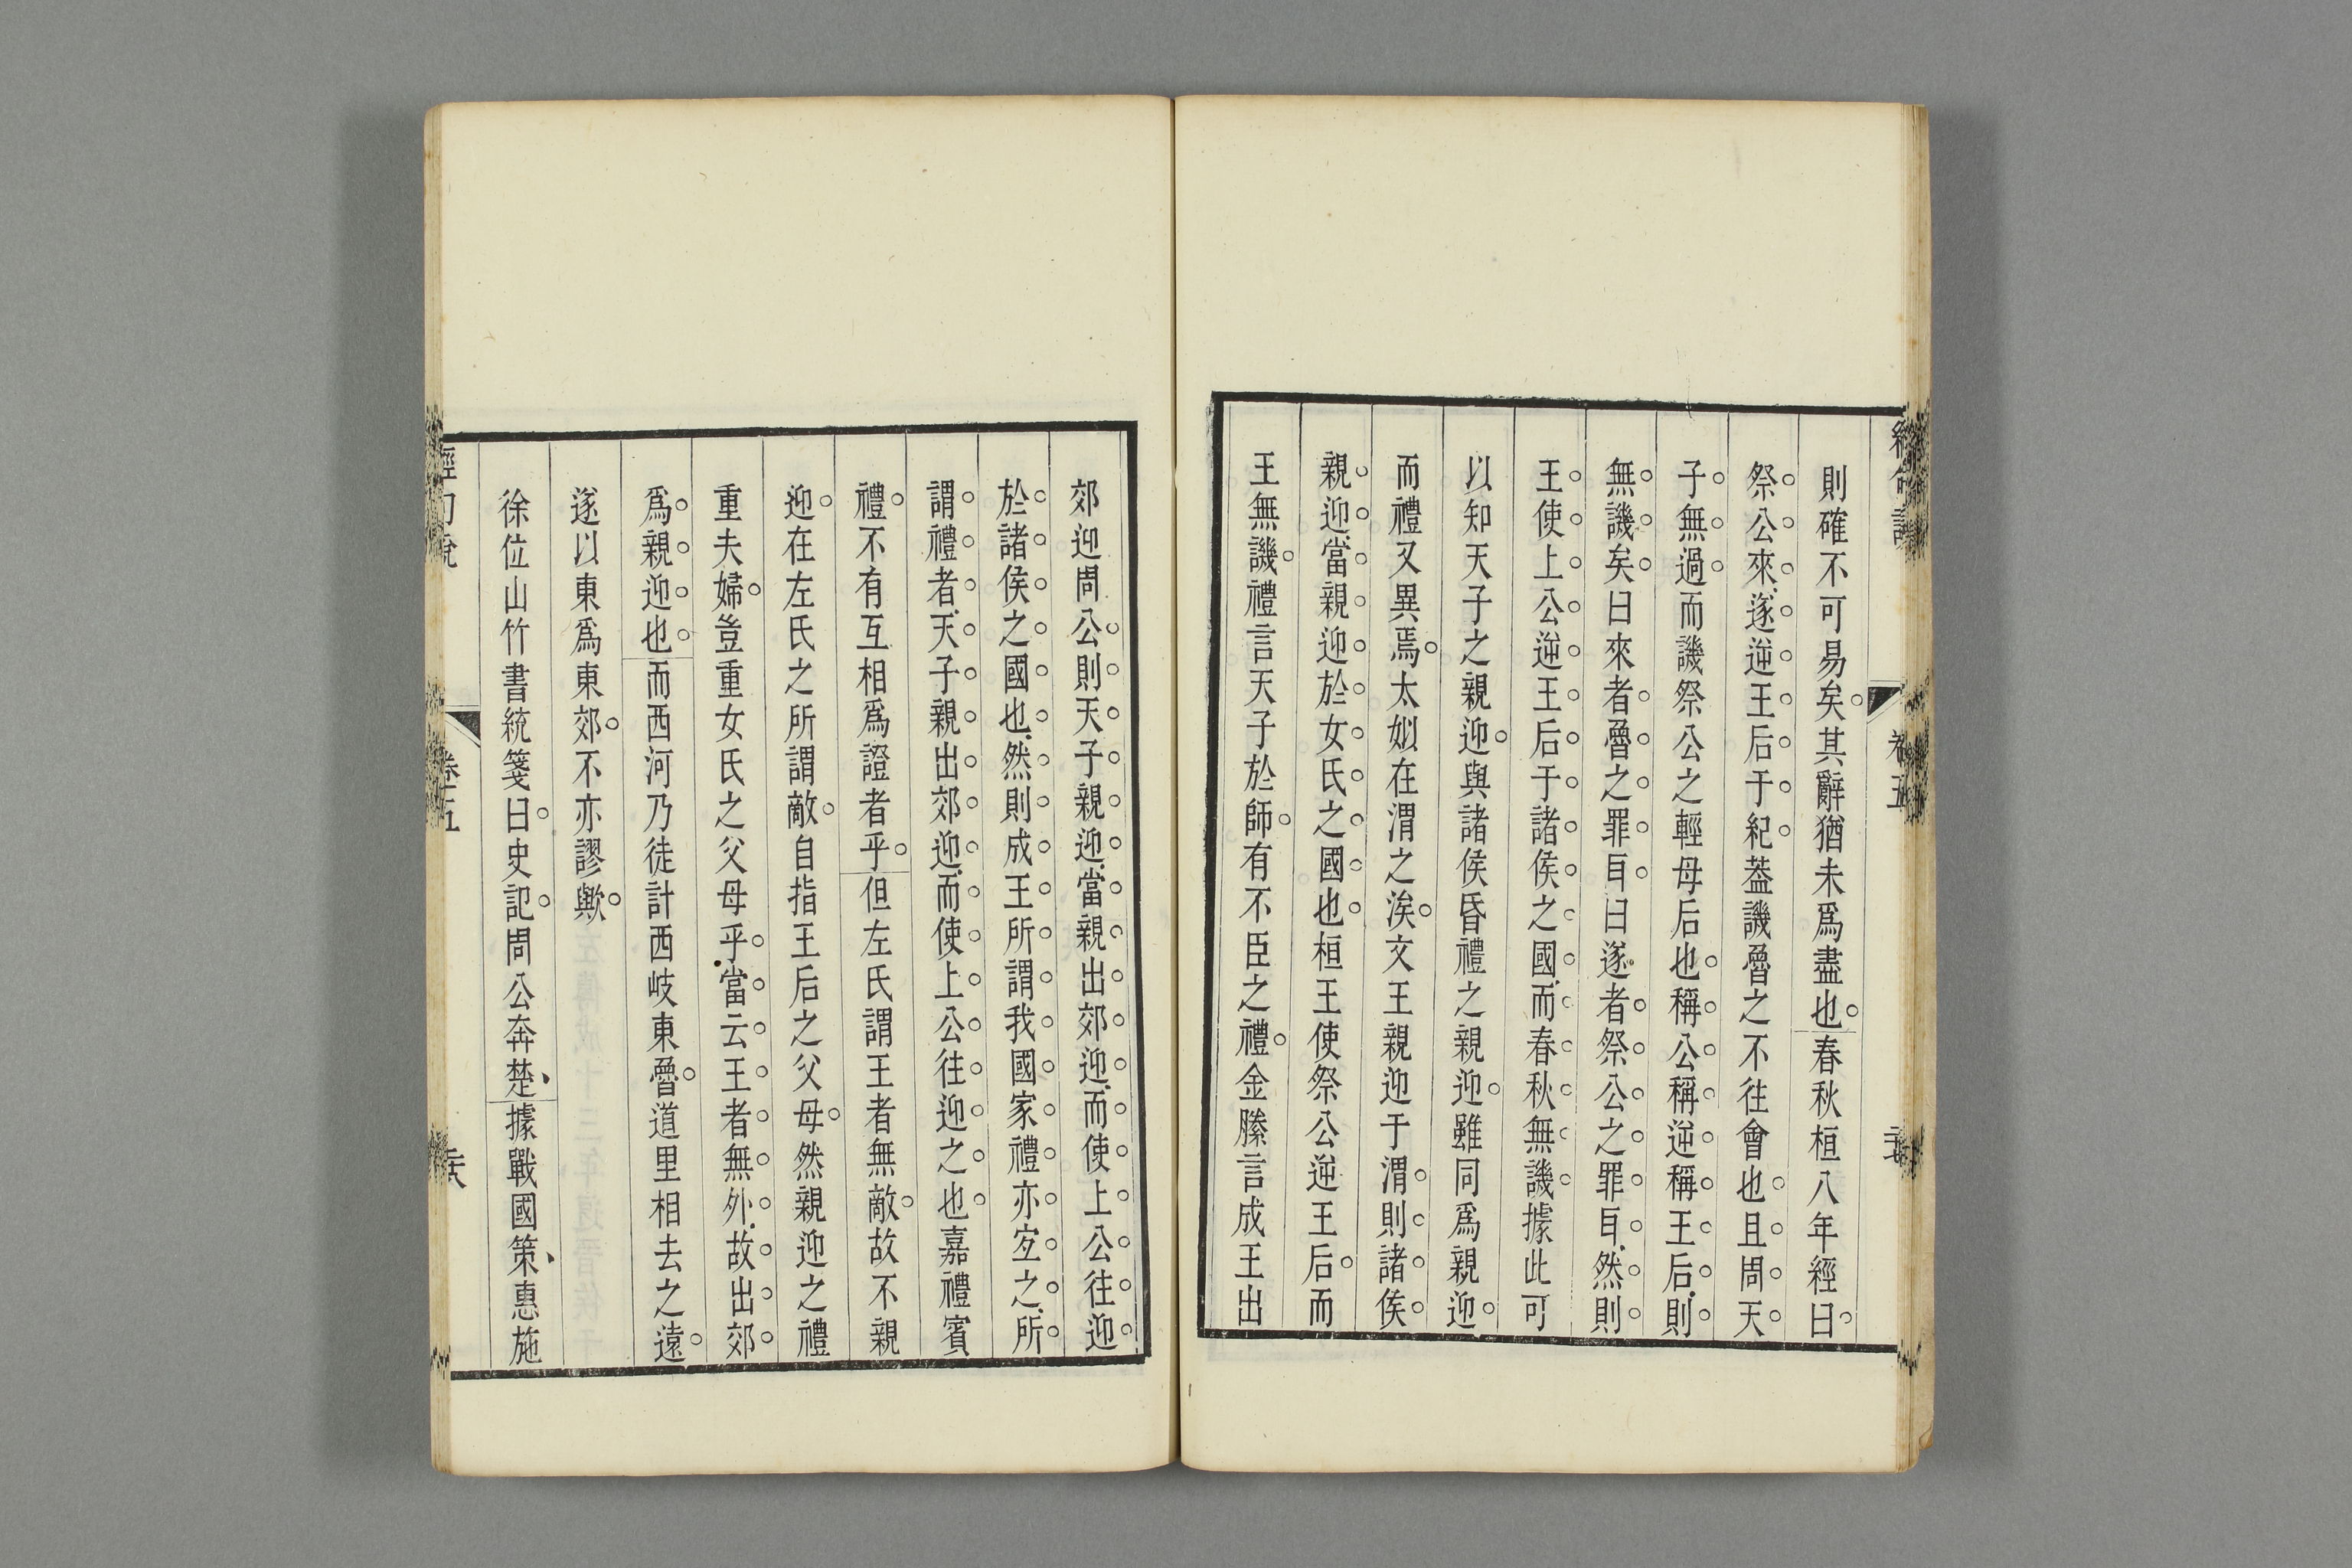 則確不可易矣其辭猶未爲盡也春秋桓八年經曰
祭公來遂逆王后于紀葢譏魯之不往會也且周天
子無過而譏祭公之輕母后也稱公稱逆稱王后則
無譏矣曰來者魯之罪耳曰遂者祭公之罪耳然則
王使上公逆王后于諸侯之國而春秋無譏據此可
以知天子之親迎與諸侯昏禮之親迎雖同爲親迎
而禮又異焉太姒在渭之涘文王親迎于渭則諸侯
親迎當親迎於女氏之國也桓王使祭公逆王后而
王無譏禮言天子於師有不臣之禮金縢言成王出
卷五
郊迎周公則天子親迎當親出郊迎而使上公往迎
於諸侯之國也然則成王所謂我國家禮亦宐之所
謂禮者天子親出郊迎而使上公往迎之也嘉禮賓
禮不有互相爲證者乎但左氏謂王者無敵故不親
迎在左氏之所謂敵自指王后之父母然親迎之禮
重夫婦豈重女氏之父母乎當云王者無外故出郊
爲親迎也而西河乃徒計西岐東魯道里相去之遠
遂以東爲東郊不亦謬歟
徐位山竹書統箋曰史記周公奔楚據戰國策惠施
卷五